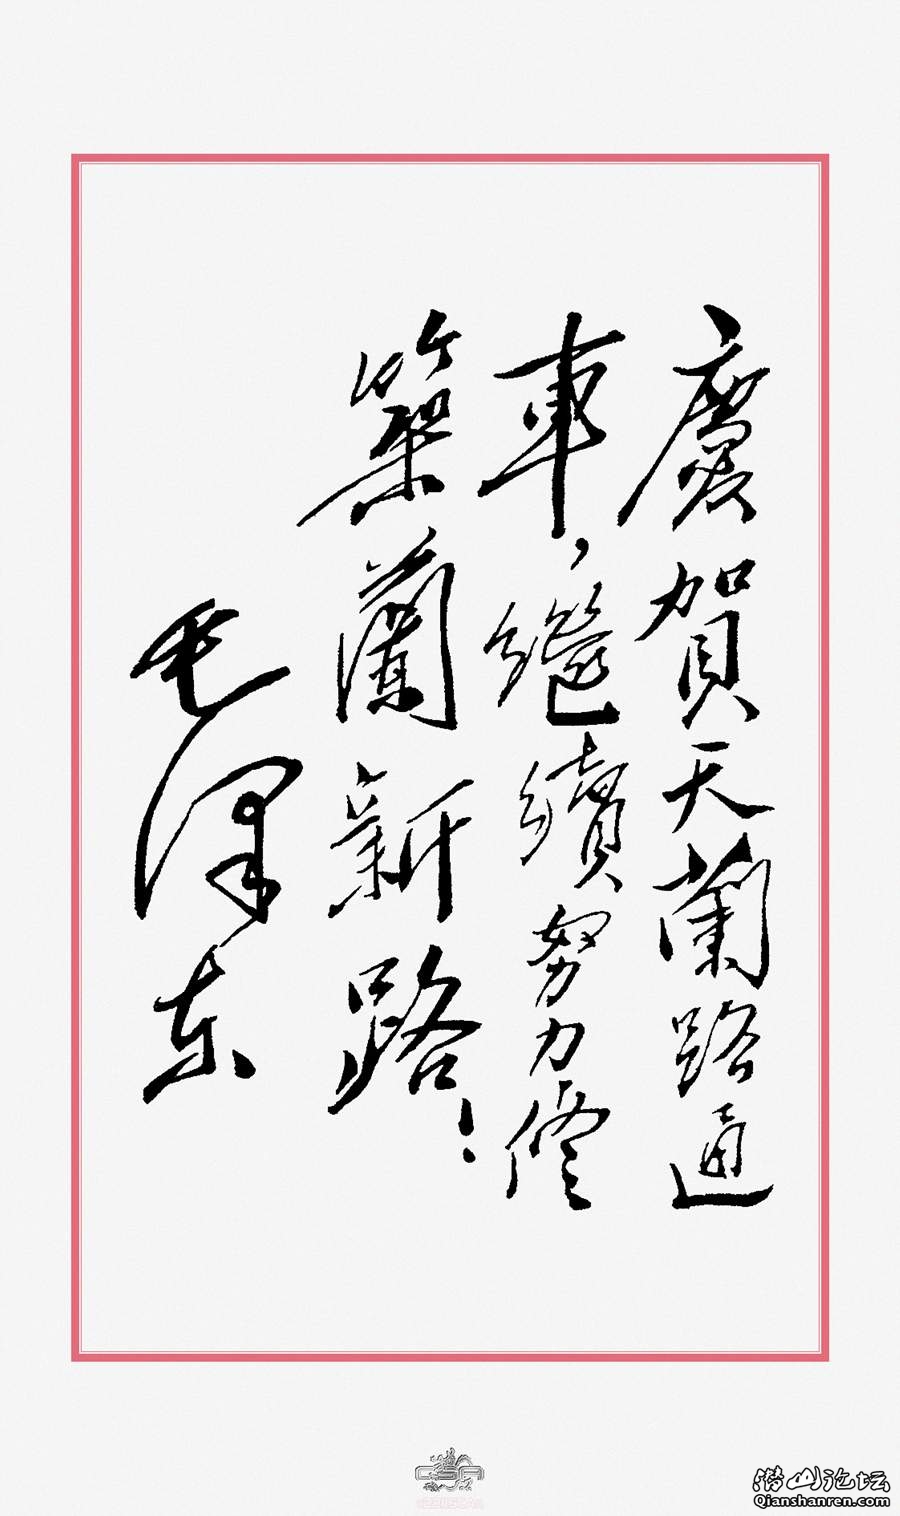 慶賀天蘭路通
車，繼續努力修
築蘭新路！
毛澤东
潜山论坛
Qianshanren.com